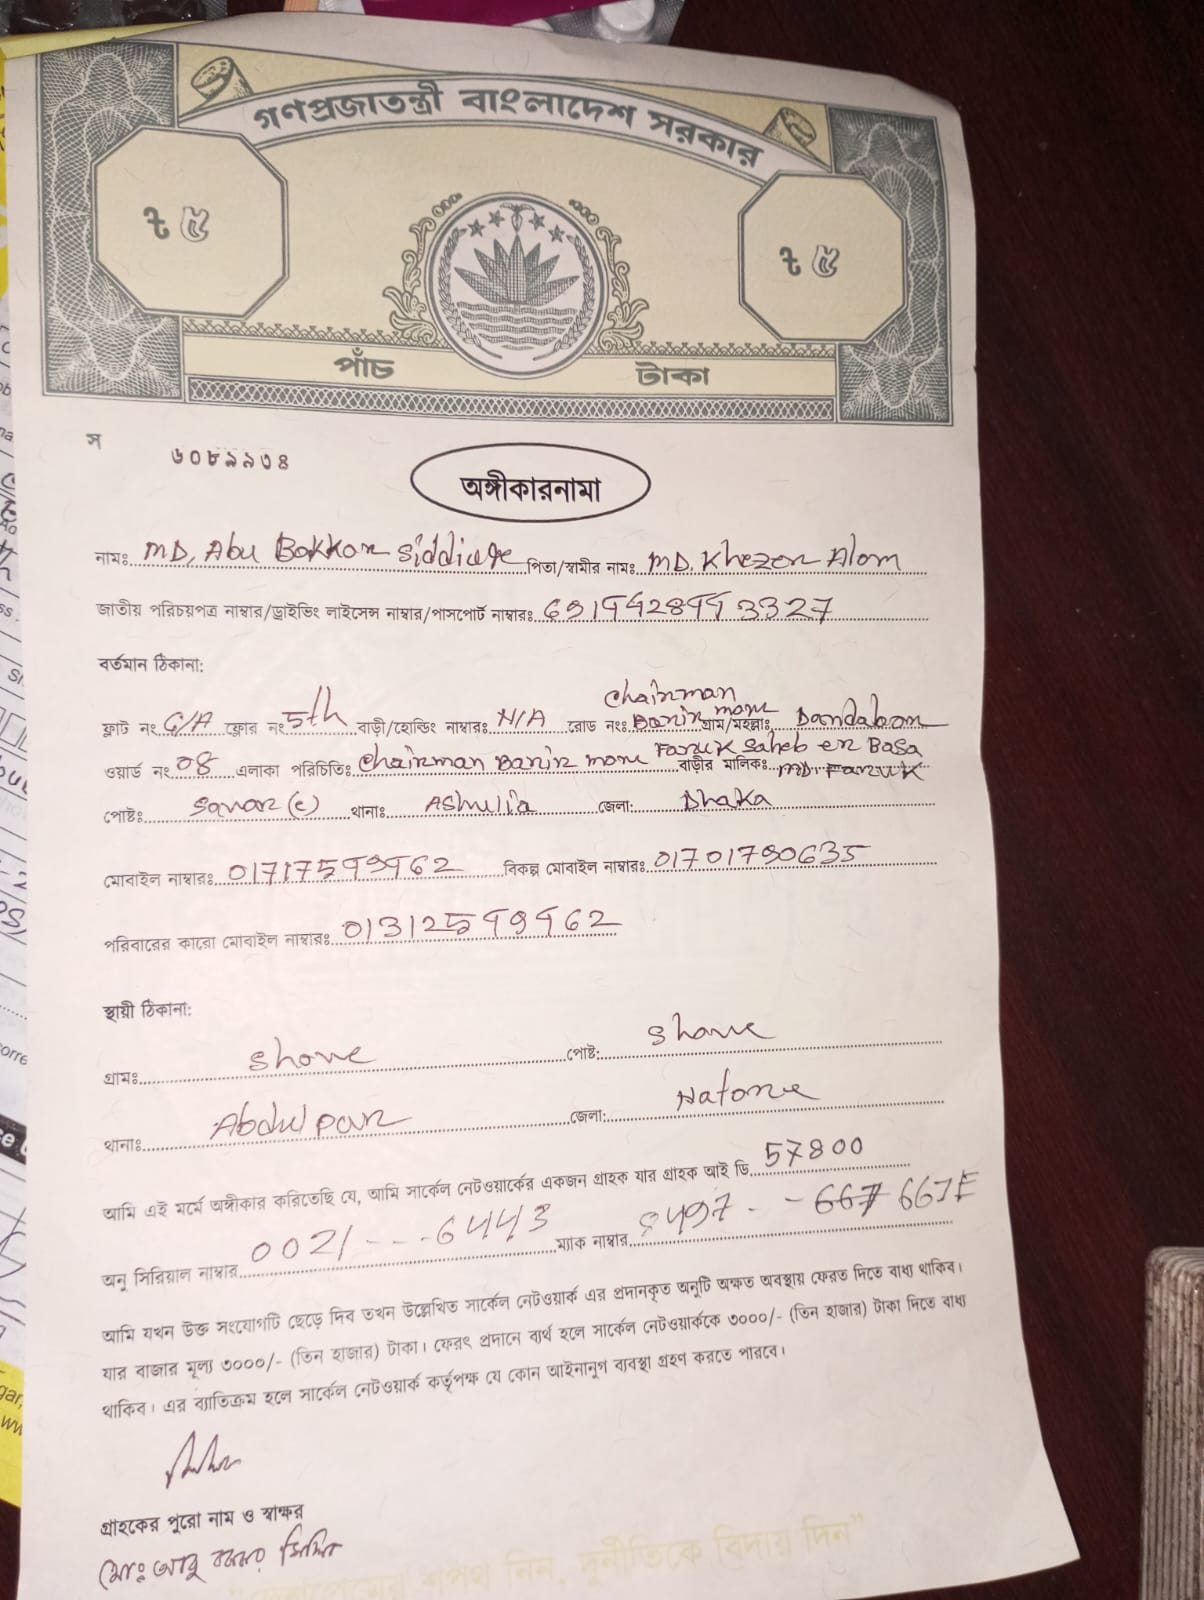 গণপ্রজাতন্ত্রী বাংলাদেশ সরকার
৳ ৫
৳ ৫
পাঁচ টাকা
স ৬০৮৯৯৩৪
অঙ্গীকারনামা
নামঃ MD, Abu Bakkar Siddiqe পিতা/স্বামীর নামঃ MD. Khezor Alom
জাতীয় পরিচয়পত্র নাম্বার/ড্রাইভিং লাইসেন্স নাম্বার/পাসপোর্ট নাম্বারঃ
বর্তমান ঠিকানা:
Chairman
ফ্লাট নং G/A ফ্লোর নং 5th বাড়ী/হোল্ডিং নাম্বারঃ N/A রোড নংঃ Barir more গ্রাম/মহল্লাঃ Dandabor
Faruk Saheb er Basa
ওয়ার্ড নং 08 এলাকা পরিচিতিঃ Chairman Barir more বাড়ীর মালিকঃ MD. Faruk
পোষ্টঃ থানাঃ Ashulia জেলা: Dhaka
মোবাইল নাম্বারঃ 01717599962 বিকল্প মোবাইল নাম্বারঃ 01701790635
পরিবারের কারো মোবাইল নাম্বারঃ 01312599962
স্থায়ী ঠিকানা:
গ্রামঃ পোষ্ট:
থানাঃ Abdulpur জেলা: Natore
আমি এই মর্মে অঙ্গীকার করিতেছি যে, আমি সার্কেল নেটওয়ার্কের একজন গ্রাহক যার গ্রাহক আই ডি 57800
অনু সিরিয়াল নাম্বার 0021---6443 ম্যাক নাম্বার
আমি যখন উক্ত সংযোগটি ছেড়ে দিব তখন উল্লেখিত সার্কেল নেটওয়ার্ক এর প্রদানকৃত অনুটি অক্ষত অবস্থায় ফেরত দিতে বাধ্য থাকিব।
যার বাজার মূল্য ৩০০০/- (তিন হাজার) টাকা। ফেরৎ প্রদানে ব্যর্থ হলে সার্কেল নেটওয়ার্ককে ৩০০০/- (তিন হাজার) টাকা দিতে বাধ্য
থাকিব। এর ব্যাতিক্রম হলে সার্কেল নেটওয়ার্ক কর্তৃপক্ষ যে কোন আইনানুগ ব্যবস্থা গ্রহণ করতে পারবে।
গ্রাহকের পুরো নাম ও স্বাক্ষর
মোঃ আবু বক্কর সিদ্দিক
শপথ নিন, দুর্নীতিকে বিদায় দিন"